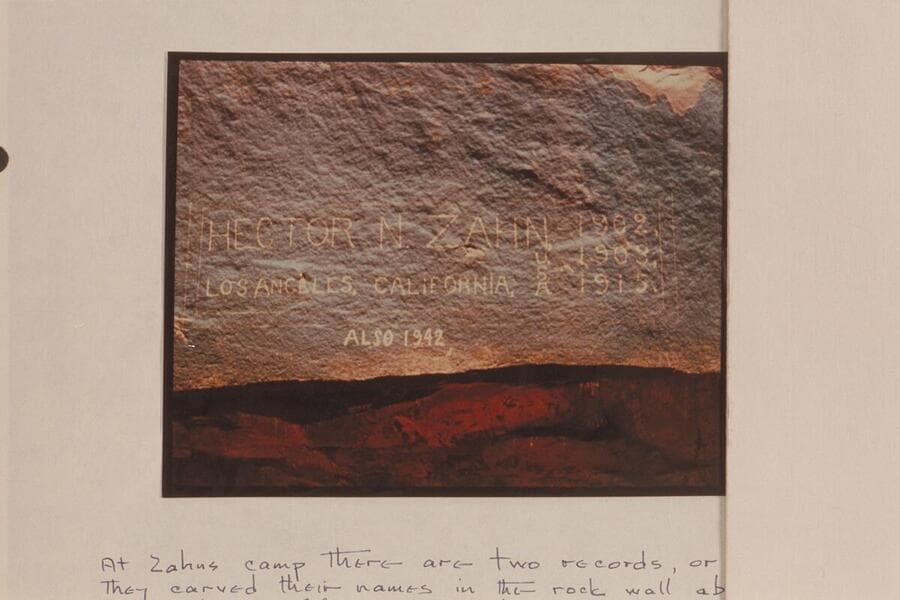 HECTOR N. ZAHN 1902.
U. 1903.
LOS ANGELES, CALIFORNIA, S. A. 1915.
ALSO 1942
At Zahns camp there are two records, or
They carved their names in the rock wall ab